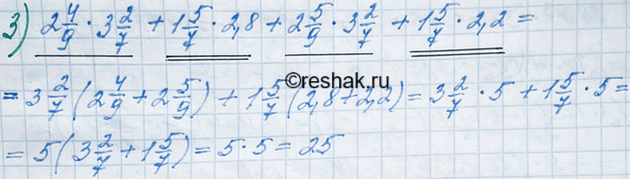 3) 2 4/9 · 3 2/7 + 1 5/7 · 2,8 + 2 5/9 · 3 2/7 + 1 5/7 · 2,2 =
©reshak.ru
= 3 2/7 (2 4/9 + 2 5/9) + 1 5/7 (2,8 + 2,2) = 3 2/7 · 5 + 1 5/7 · 5 =
= 5 (3 2/7 + 1 5/7) = 5 · 5 = 25